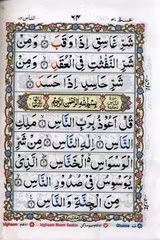 شَرِّ غَاسِقٍ اِذَا وَقَبَ وَمِنْ
شَرِّ النَّفّٰثٰتِ فِي الْعُقَدِ وَمِنْ
شَرِّ حَاسِدٍ اِذَا حَسَدَ
بِسْمِ اللّٰهِ الرَّحْمٰنِ الرَّحِيْمِ
قُلْ اَعُوْذُ بِرَبِّ النَّاسِ مَلِكِ
النَّاسِ اِلٰهِ النَّاسِ مِنْ شَرِّ
الْوَسْوَاسِ الْخَنَّاسِ الَّذِيْ
يُوَسْوِسُ فِيْ صُدُوْرِ النَّاسِ
مِنَ الْجِنَّةِ وَ النَّاسِ